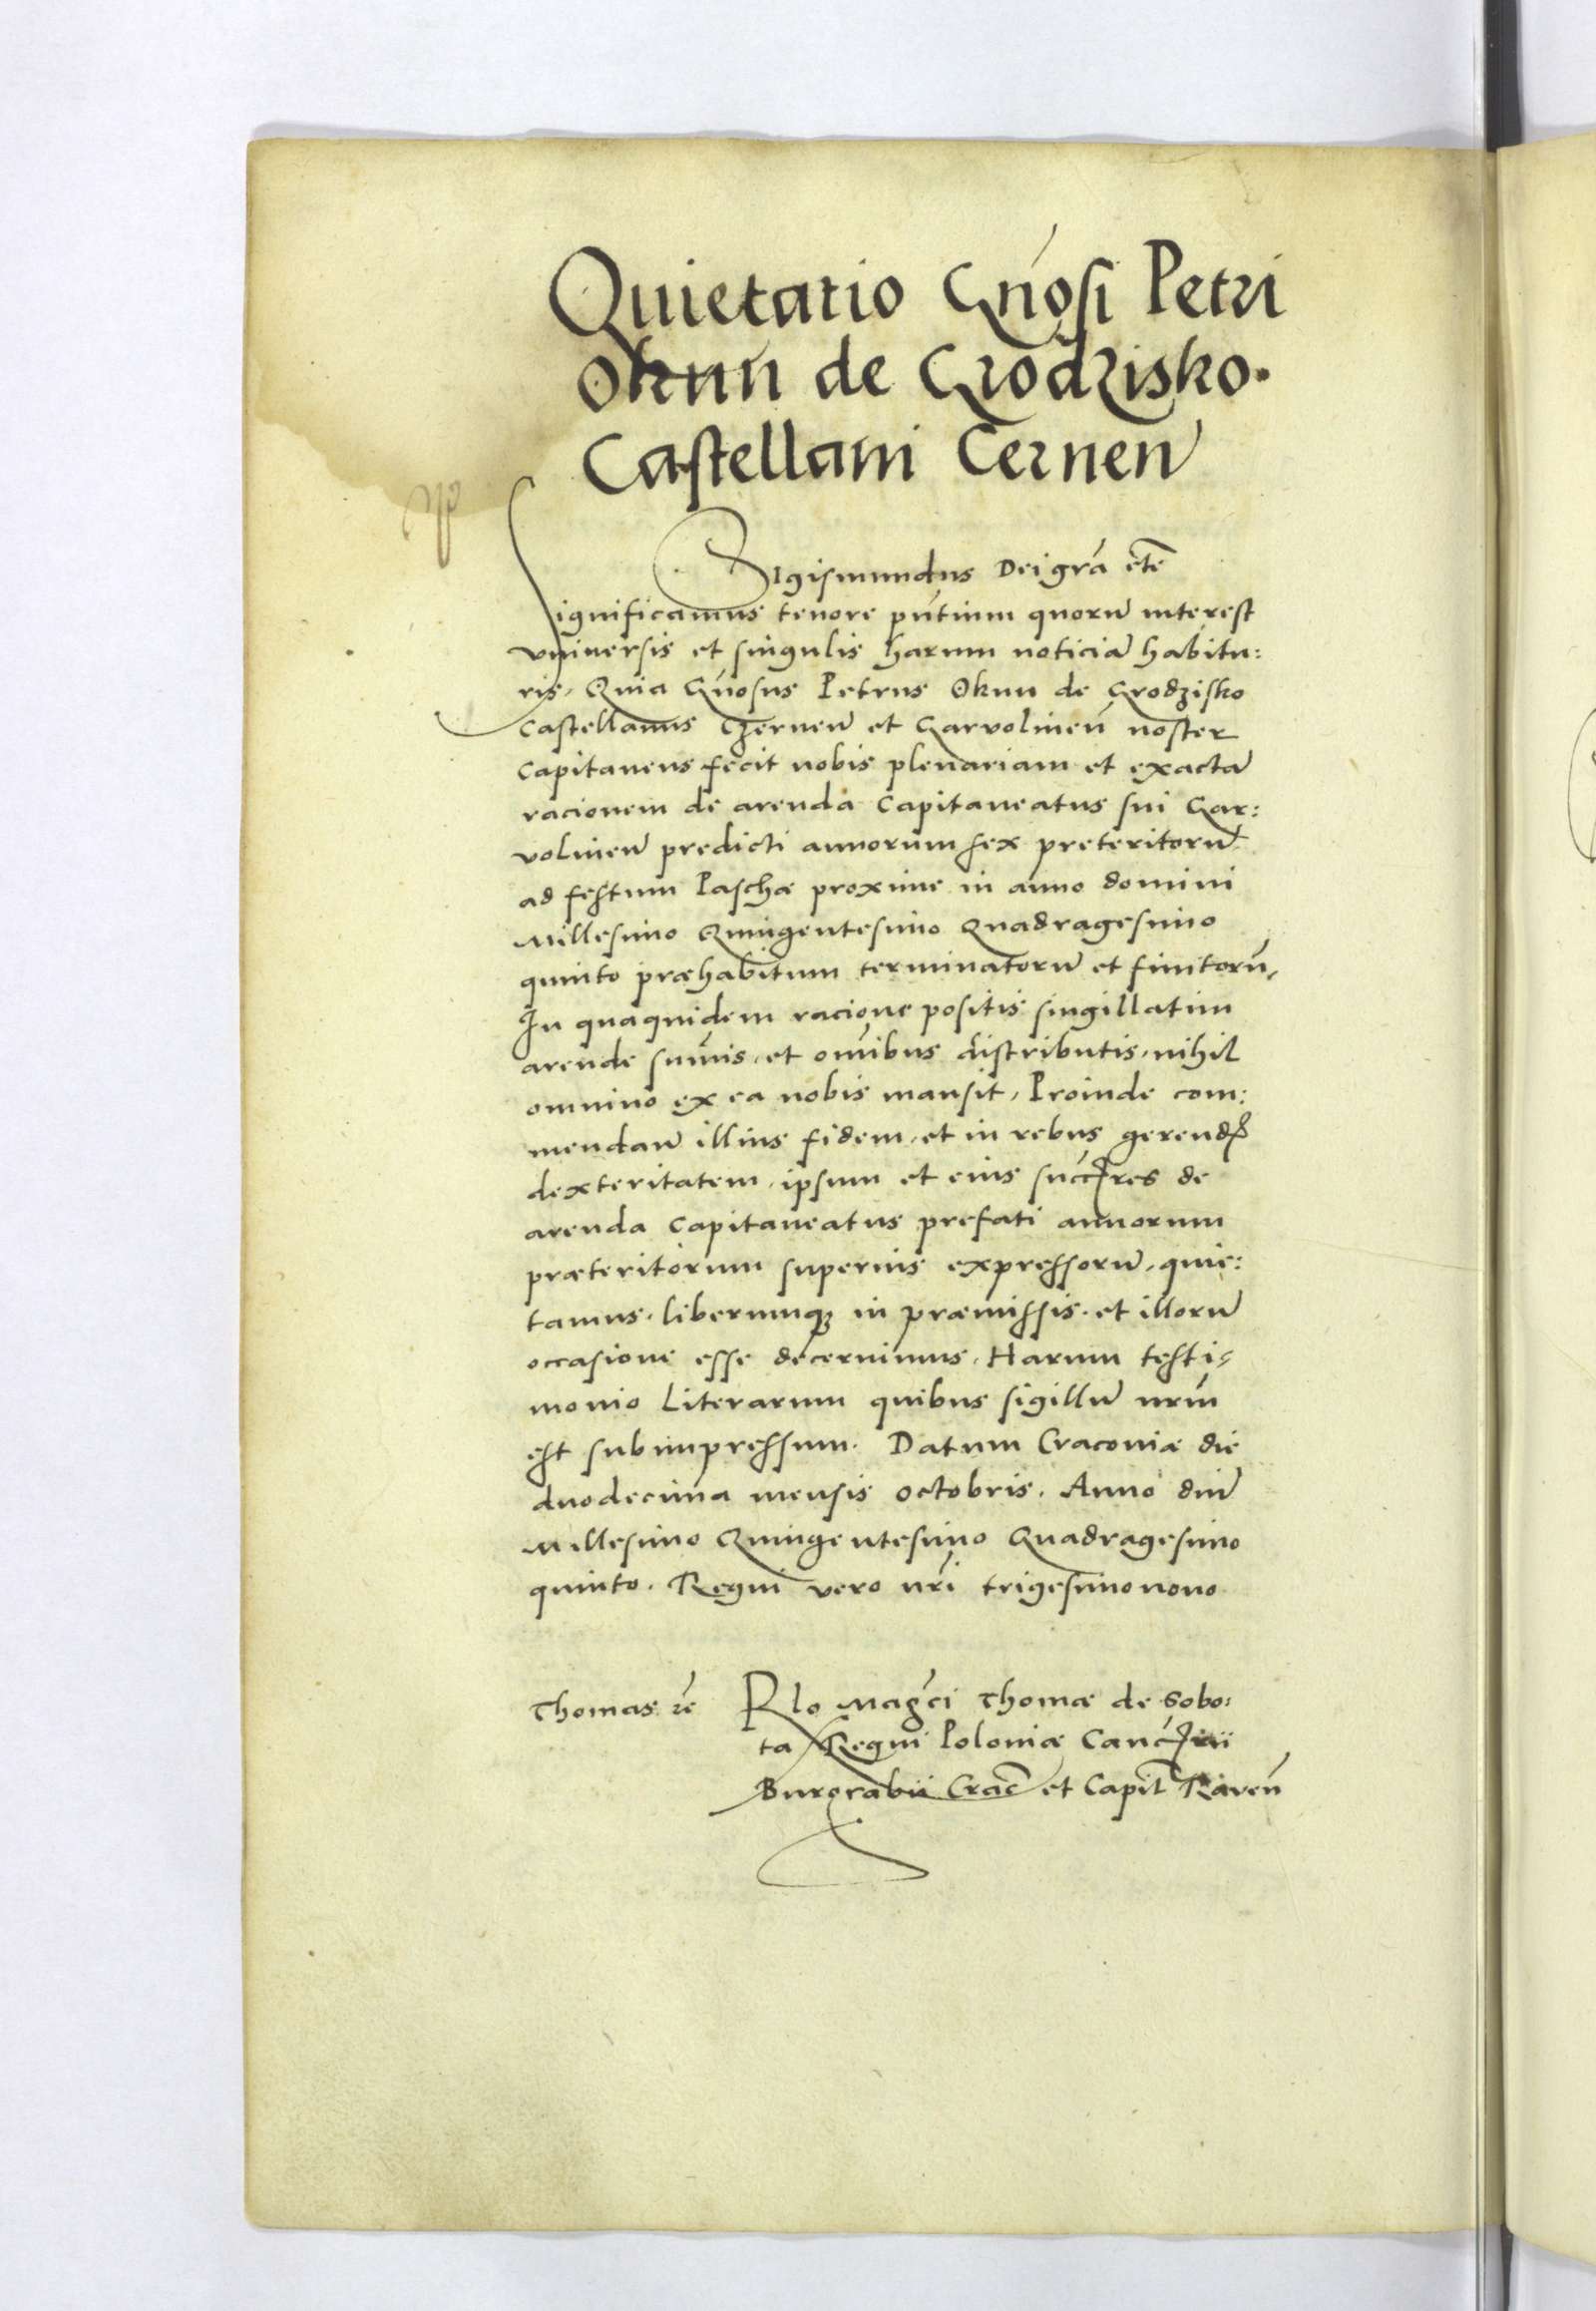 Quietatio Gn̄osi Petri
Okun de Grodzisko.
Castellani Cernen̄
Sigismundus Dei gr̄a etc̄
Significamus tenore pn̄tium quorum̄ interest
vniversis et singulis harum noticiam̄ habitu:
ris, Quia Gn̄osus Petrus Okun de Grodzisko
Castellanus Czernen̄ et Garvolinen̄ noster
Capitaneus fecit nobis plenariam et exactam̄
racionem de arenda Capitaneatus sui Gar:
volinen̄ predicti annorum sex preteritorum̄
ad festum Paschæ proxime in anno domini
Millesimo Quingentesimo Quadragesimo
quinto præhabitum terminatorum̄ et finitorū,
In quaquidem racione positis singillatim
arende sum̄is, et om̄ibus distributis, nihil
omnino ex ea nobis mansit, Proinde com:
mendan̄ illius fidem, et in rebus gerendꝭ
dexteritatem, ipsum et eius succ̄res de
arenda Capitaneatus prefati annorum
præteritorum superius expressorum̄, quie:
tamus, liberumqꝫ in præmissis, et illorum̄
occasione esse decernimus, Harum testi:
monio Literarum quibus sigillum̄ nr̄m
est subimpressum. Datum Cracoviæ die
duodecima mensis octobris. Anno din̄
Millesimo Quingentesimo Quadragesimo
quinto. Regni vero nr̄i trigesimonono
Thomas Rlo Magc̄i Thomæ de Sobo:
ta Regni Poloniæ Canc̄rii
Burgrabii Crac̄ et Capit̄ Raven̄